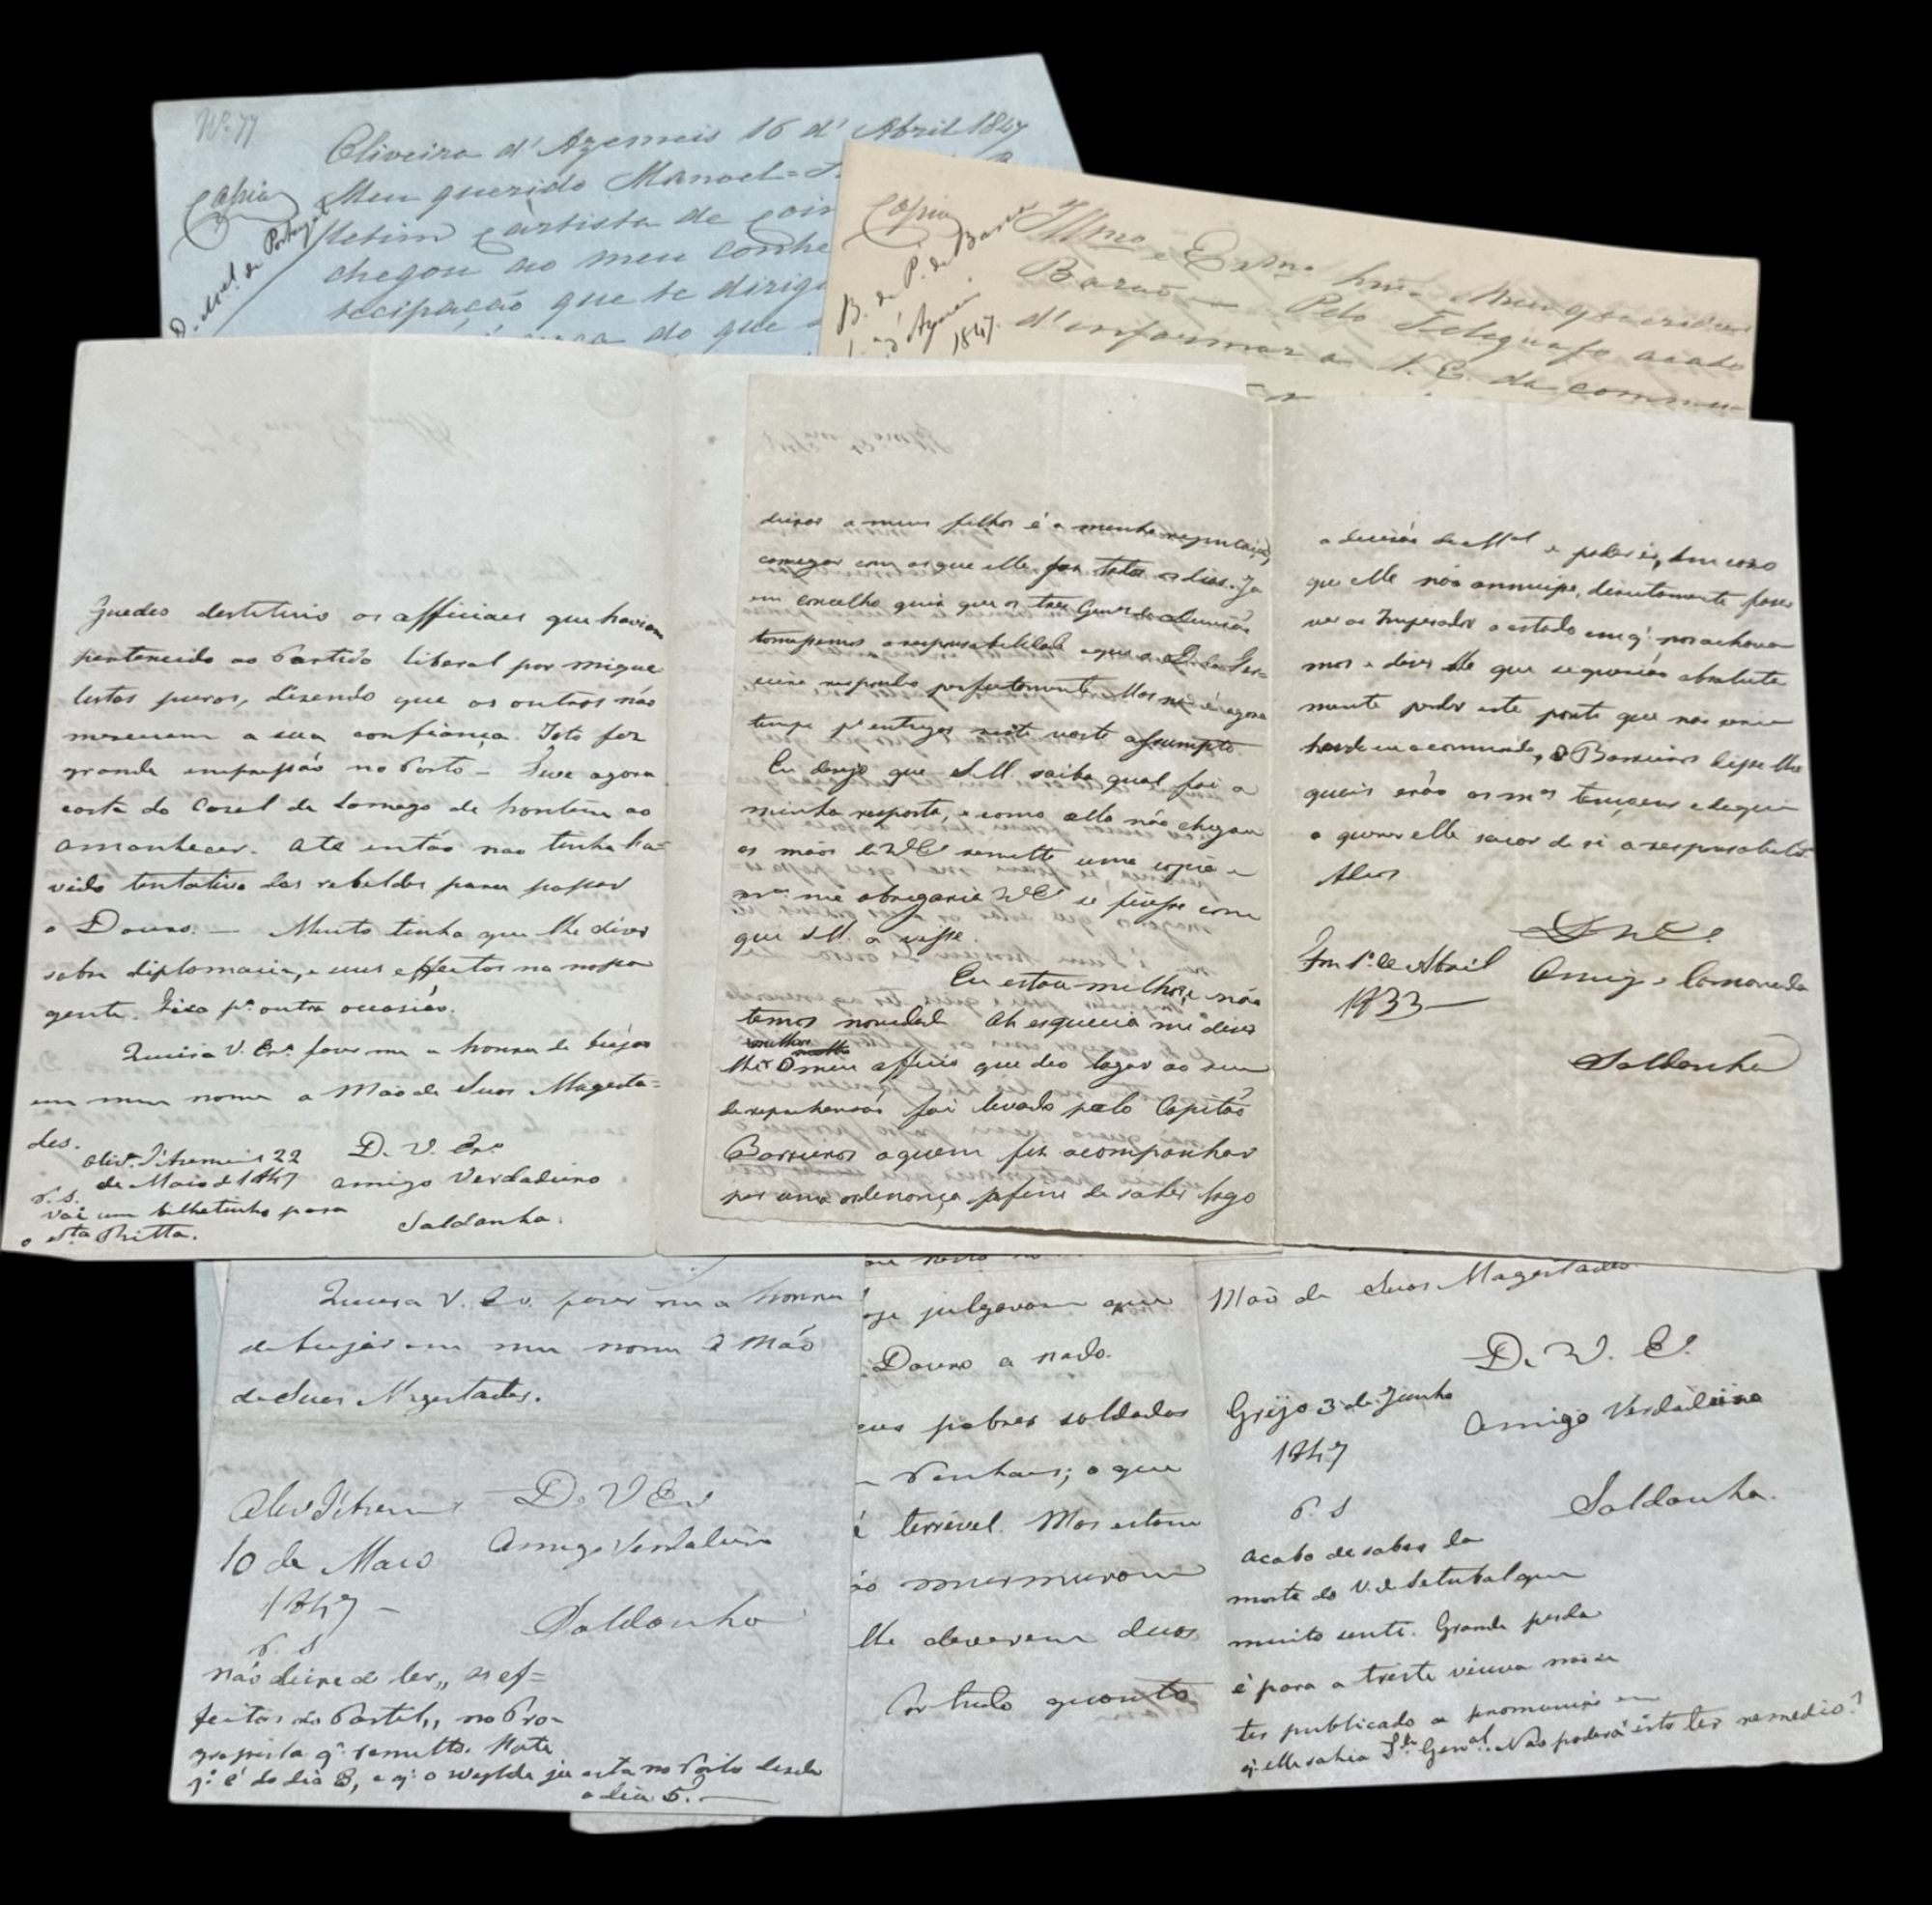 Nº 77
Oliveira d'Azemeis 16 d'Abril 1847
Copia
Meu querido Manoel
D. Mel. de Portugal
letim Cartista de Coim
chegou ao meu conhe
tecipação que se dirigi
do que
Copia
Illmo e Exmo Snr. Meu querido
B. de P. da
Barão Pelo Telegrafo acabo
1847.
d'informar a V. E. da commu
Guedes destituio os officiaes que haviam
pertencido ao Partido liberal por migue
listas puros, dizendo que os outros não
mereciam a sua confiança. Isto fez
grande impressão no Porto - Tive agora
carta do Corel de Lamego de hontem ao
amanhecer. Até então não tinha ha=
vido tentativa dos rebeldes para passar
o Douro. — Muito tinha que lhe dizer
sobre diplomacia, e seus effeitos na nossa
gente. Fica pª outra occasião.
Queira V. Exª fazer me a honra de beijar
em meu nome a Mão de Suas Magesta=
des.
D. V. Exª
Olivª d'Azemeis 22
de Maio de 1847
amigo Verdadeiro
Saldanha.
P. S.
Vai um bilhetinho para
a Sta Ritta.
deixar a meus filhos é a minha reputação,
começar com os que elle faz todos os dias. Ja
em concelho quiz que os tres Genes de Divisão
tomassemos a responsabilidade
respondeo perfeitamente Mas não é agora
tempo pª entrar neste vasto assumpto.
Eu desejo que S.M. saiba qual foi a
minha resposta, e como ella não chegou
as mãos de VE remetto uma copia e
mto me obrigaria VE se fizesse com
que S.M. a visse.
Eu estou melhor, e não
temos novidade. Ah esquecia me dizer
lhe O meu officio que deo lugar ao seu
de reprehensão foi levado pelo Capitão
Barreiros a quem fiz acompanhar
por uma ordenança afim de saber logo
a decisão e poder eu, em caso
que elle não annuisse, directamente fazer
ver ao Imperador o estado em qe nos achava
mos e dizer lhe que se querião absoluta
mente perder este ponto que não seria
hende eu a commanda, o Barreiros disse lhe
quais erão as mas tençoens e
a querer elle sacar de si a responsabelide
Adeos
D V E.
Em 1º de Abril
1833 —
Amigo e Camarada
Saldanha
Queira V. Ex. fazer me a honra
de beijar em meu nome a Mão
de Suas Magestades.
Oliv d'Azem
D. V Ex
10 de Maio
Amigo Verdadeiro
1847 -
Saldanha
P. S
Não deixe de ler "os ef=
feitos do Partel" no Pro=
gressista qe remetto. Note
qe é do dia 8, e qe o Wylde ja esta no Porto desde
o dia 5. —
oje julgavam que
Douro a nado.
eus pobres soldados
Penhaes; o que
é terrivel. Mas estou
ão murmuram
lhe deverem duas
Por tudo quanto
Mão de Suas Magestades.
D. V. E.
Grijo 3 de Junho
1847
Amigo Verdadeiro
Saldanha.
P. S
Acabo de saber da
morte do V. de Setubal que
muito senti. Grande perda
é para a triste viuva não se
ter publicado a promoção em
qe elle sahia Te Genal. Não poderá isto ter remedio?